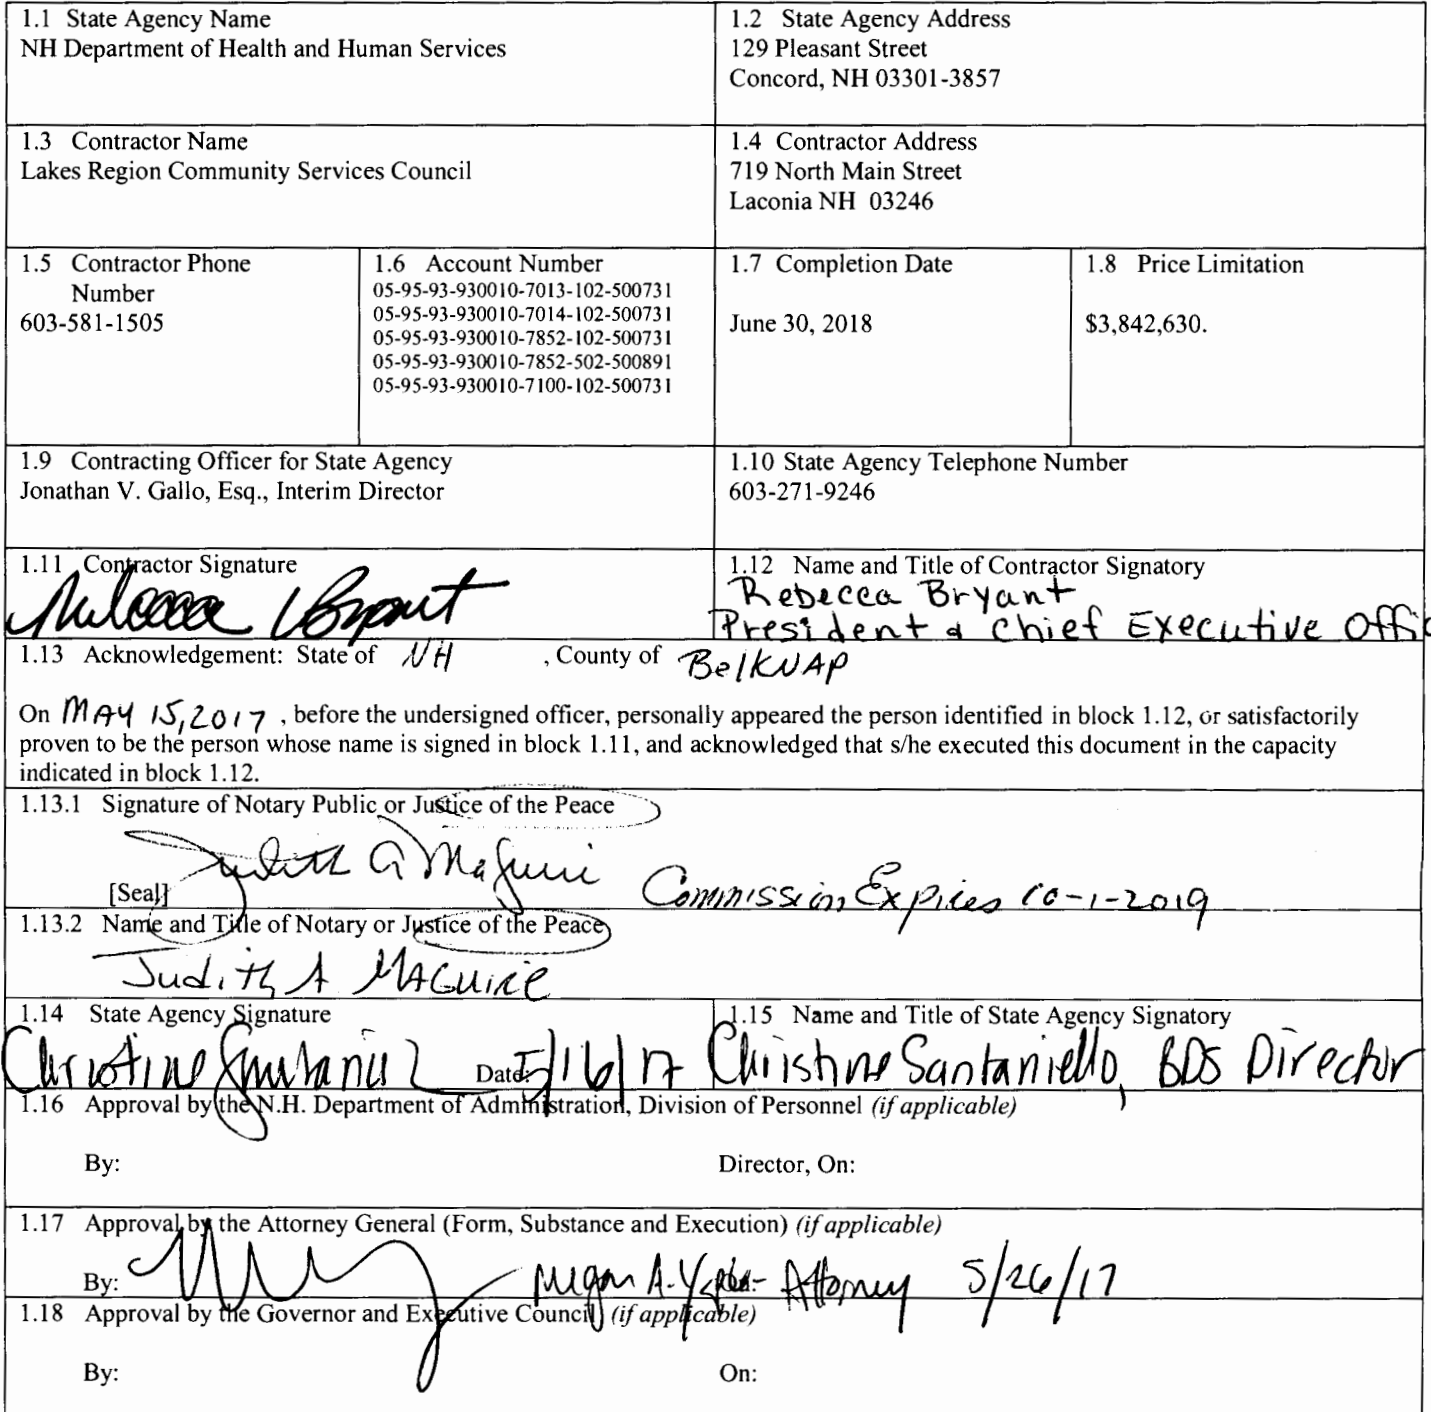 1.1 State Agency Name
NH Department of Health and Human Services
1.2 State Agency Address
129 Pleasant Street
Concord, NH 03301-3857
1.3 Contractor Name
Lakes Region Community Services Council
1.4 Contractor Address
719 North Main Street
Laconia NH 03246
1.5 Contractor Phone
Number
603-581-1505
1.6 Account Number
05-95-93-930010-7013-102-500731
05-95-93-930010-7014-102-500731
05-95-93-930010-7852-102-500731
05-95-93-930010-7852-502-500891
05-95-93-930010-7100-102-500731
1.7 Completion Date
June 30, 2018
1.8 Price Limitation
$3,842,630.
1.9 Contracting Officer for State Agency
Jonathan V. Gallo, Esq., Interim Director
1.10 State Agency Telephone Number
603-271-9246
1.11 Contractor Signature
Rebecca Bryant
1.12 Name and Title of Contractor Signatory
Rebecca Bryant
President & Chief Executive Offic
1.13 Acknowledgement: State of NH , County of BelKNAP
On MAY 15, 2017 , before the undersigned officer, personally appeared the person identified in block 1.12, or satisfactorily
proven to be the person whose name is signed in block 1.11, and acknowledged that s/he executed this document in the capacity
indicated in block 1.12.
1.13.1 Signature of Notary Public or Justice of the Peace
Judith A Maguire Commission Expires 10-1-2019
[Seal]
1.13.2 Name and Title of Notary or Justice of the Peace
Judith A MAGuire
1.14 State Agency Signature
Christine Santaniello Date: 5/16/17
1.15 Name and Title of State Agency Signatory
Christine Santaniello, BDS Director
1.16 Approval by the N.H. Department of Administration, Division of Personnel (if applicable)
By: Director, On:
1.17 Approval by the Attorney General (Form, Substance and Execution) (if applicable)
By: Megan A. Attorney 5/26/17
1.18 Approval by the Governor and Executive Council (if applicable)
By: On: